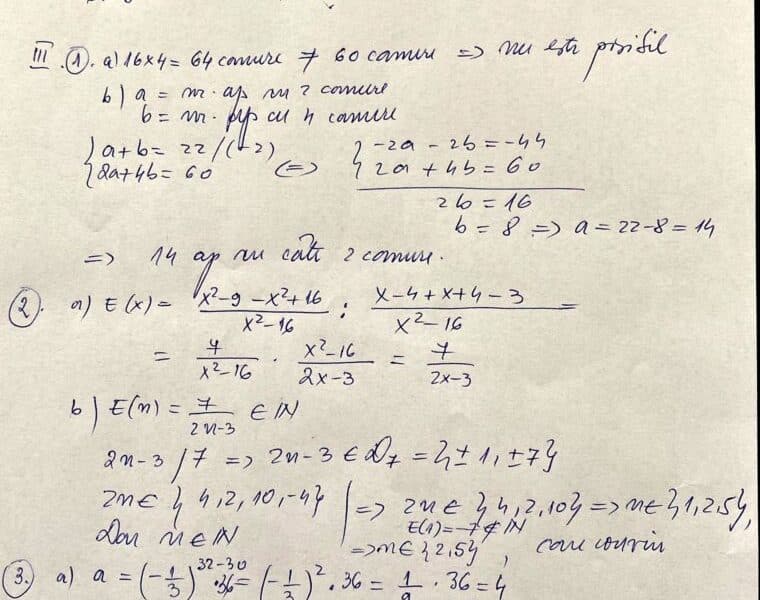 III. 1. a) 16x4 = 64 camere ≠ 60 camere => nu este posibil
b) a = nr. ap cu 2 camere
b = nr. ap cu 4 camere
{a+b = 22 /(-2) {-2a - 2b = -44
{2a+4b = 60 <=> {2a + 4b = 60
2b = 16
b = 8 => a = 22-8 = 14
=> 14 ap cu câte 2 camere.
2. a) E(x) = (x²-9-x²+16)/(x²-16) : (x-4+x+4-3)/(x²-16) =
= 7/(x²-16) · (x²-16)/(2x-3) = 7/(2x-3)
b) E(n) = 7/(2n-3) ∈ IN
2n-3 / 7 => 2n-3 ∈ D₇ = {±1, ±7}
2n ∈ {4,2,10,-4} | => 2n ∈ {4,2,10} => n ∈ {1,2,5},
Dar n ∈ IN E(1) = -7 ∉ IN
=> n ∈ {2,5}, care convin
3. a) a = (-1/3)³²⁻³⁰ · 36 = (-1/3)² · 36 = 1/9 · 36 = 4